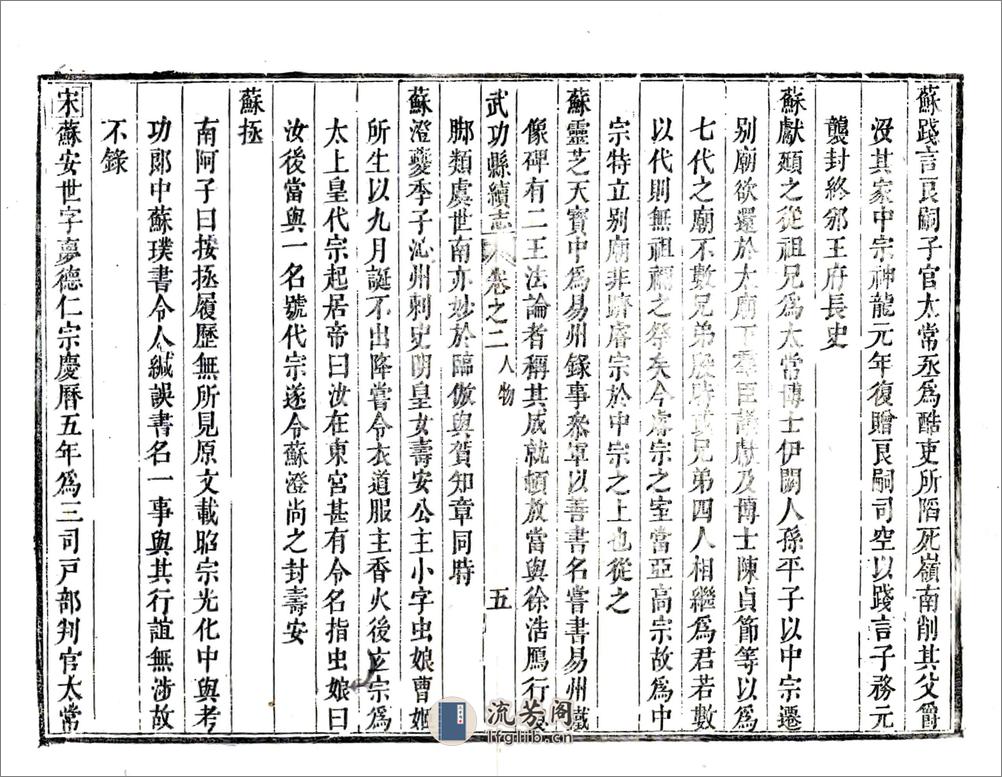 蘇踐言良嗣子官太常丞爲酷吏所陷死嶺南削其父爵
沒其家中宗神龍元年復贈良嗣司空以踐言子務元
襲封終邠王府長史
蘇獻頲之從祖兄爲太常博士伊闕人孫平子以中宗遷
别廟欲還於太廟下羣臣議獻及博士陳貞節等以爲
七代之廟不數兄弟殷時或兄弟四人相繼爲君若數
以代則無祖禰之祭矣今睿宗之室當亞高宗故爲中
宗特立别廟非躋睿宗於中宗之上也從之
蘇靈芝天寶中爲易州錄事參軍以善書名嘗書易州鐵
像碑有二王法論者稱其成就頓放當與徐浩鴈行
武功縣續志 卷之二 人物 五
脚類虞世南亦妙於臨倣與賀知章同時
蘇澄夔季子沁州刺史明皇女壽安公主小字虫娘曹姬
所生以九月誕不出降嘗令衣道服主香火後玄宗爲
太上皇代宗起居帝曰汝在東宮甚有令名指虫娘曰
汝後當與一名號代宗遂令蘇澄尚之封壽安
蘇拯
南阿子曰按拯履歷無所見原文載昭宗光化中與考
功郎中蘇璞書令人緘誤書名一事與其行誼無涉故
不錄
宋蘇安世字夢德仁宗慶曆五年爲三司戸部判官太常
流芳阁
lfglib.cn